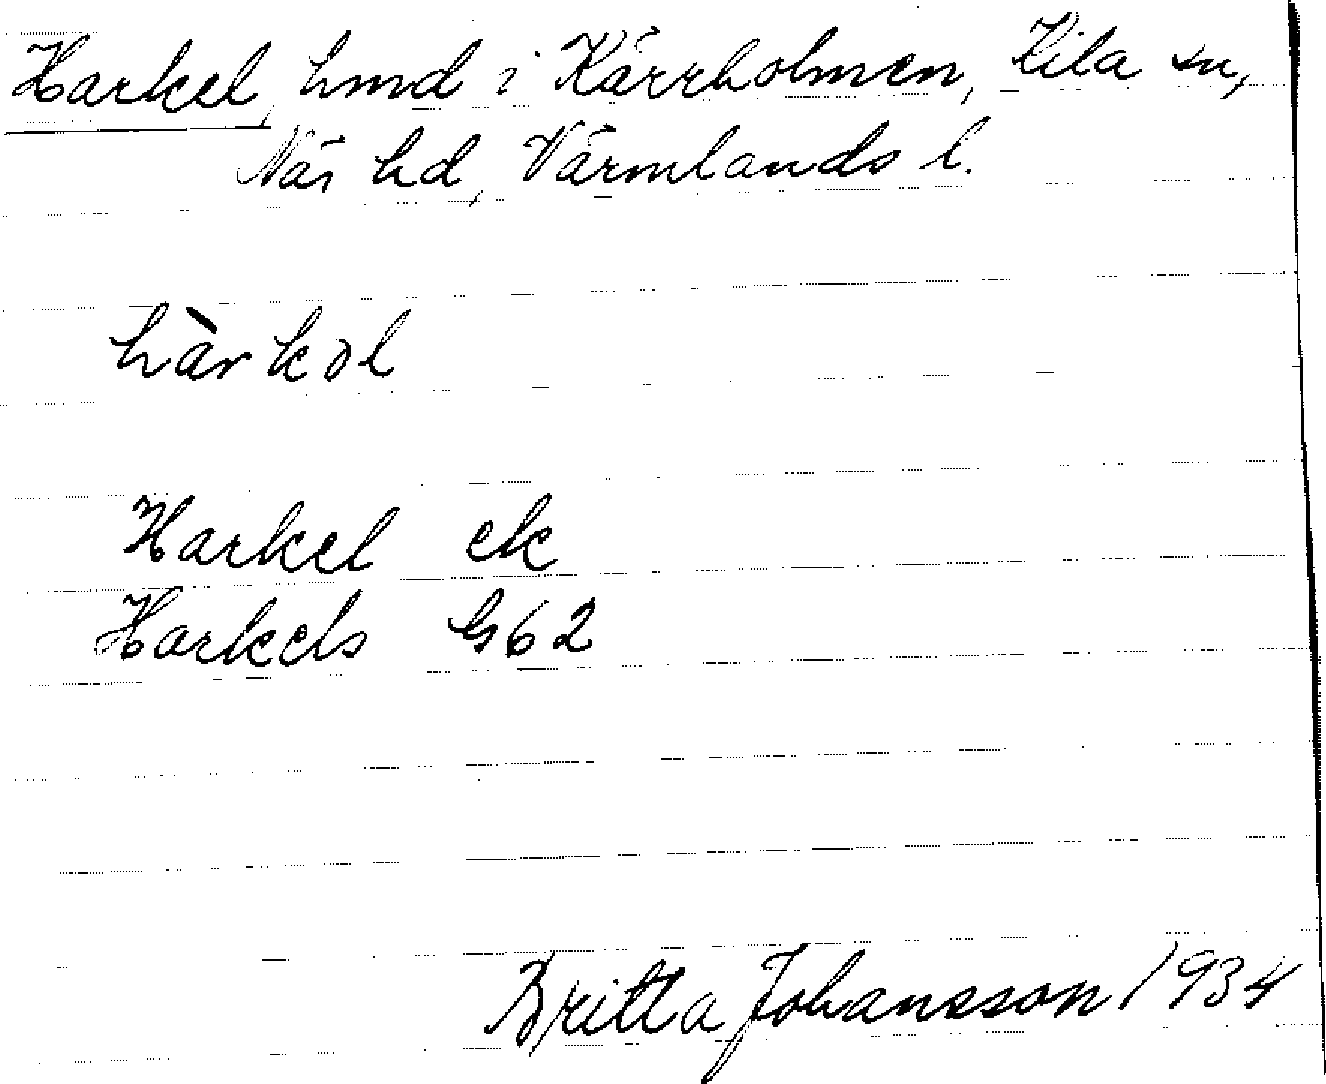 Harkel, hmd i Kärrholmen, Kila sn,
När hd, Värmlands l.
hàrkol
Harkel ek
Harkels G62
Britta Johansson 1934